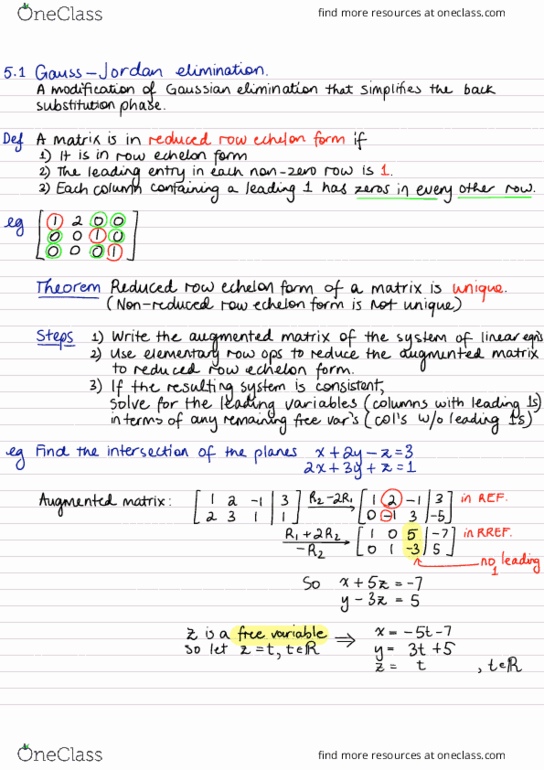 OneClass find more resources at oneclass.com
5.1 Gauss-Jordan elimination.
A modification of Gaussian elimination that simplifies the back
substitution phase.
Def A matrix is in reduced row echelon form if
1) It is in row echelon form
2) The leading entry in each non-zero row is 1.
3) Each column containing a leading 1 has zeros in every other row.
eg [ 1 2 0 0
0 0 1 0
0 0 0 1 ]
Theorem Reduced row echelon form of a matrix is unique.
(Non-reduced row echelon form is not unique)
Steps 1) Write the augmented matrix of the system of linear eqn's
2) Use elementary row ops to reduce the augmented matrix
to reduced row echelon form.
3) If the resulting system is consistent,
solve for the leading variables (columns with leading 1s)
in terms of any remaining free var's (col's w/o leading 1s)
eg Find the intersection of the planes x+2y-z=3
2x+3y+z=1
Augmented matrix: [ 1 2 -1 | 3 ] R2-2R1 → [ 1 2 -1 | 3 ] in REF.
[ 2 3 1 | 1 ] [ 0 -1 3 | -5 ]
R1+2R2 → [ 1 0 5 | -7 ] in RREF.
-R2 [ 0 1 -3 | 5 ]
no leading
1
So x+5z=-7
y-3z=5
z is a free variable ⇒ x=-5t-7
so let z=t, t∈ℝ y= 3t+5
z= t , t∈ℝ
OneClass find more resources at oneclass.com